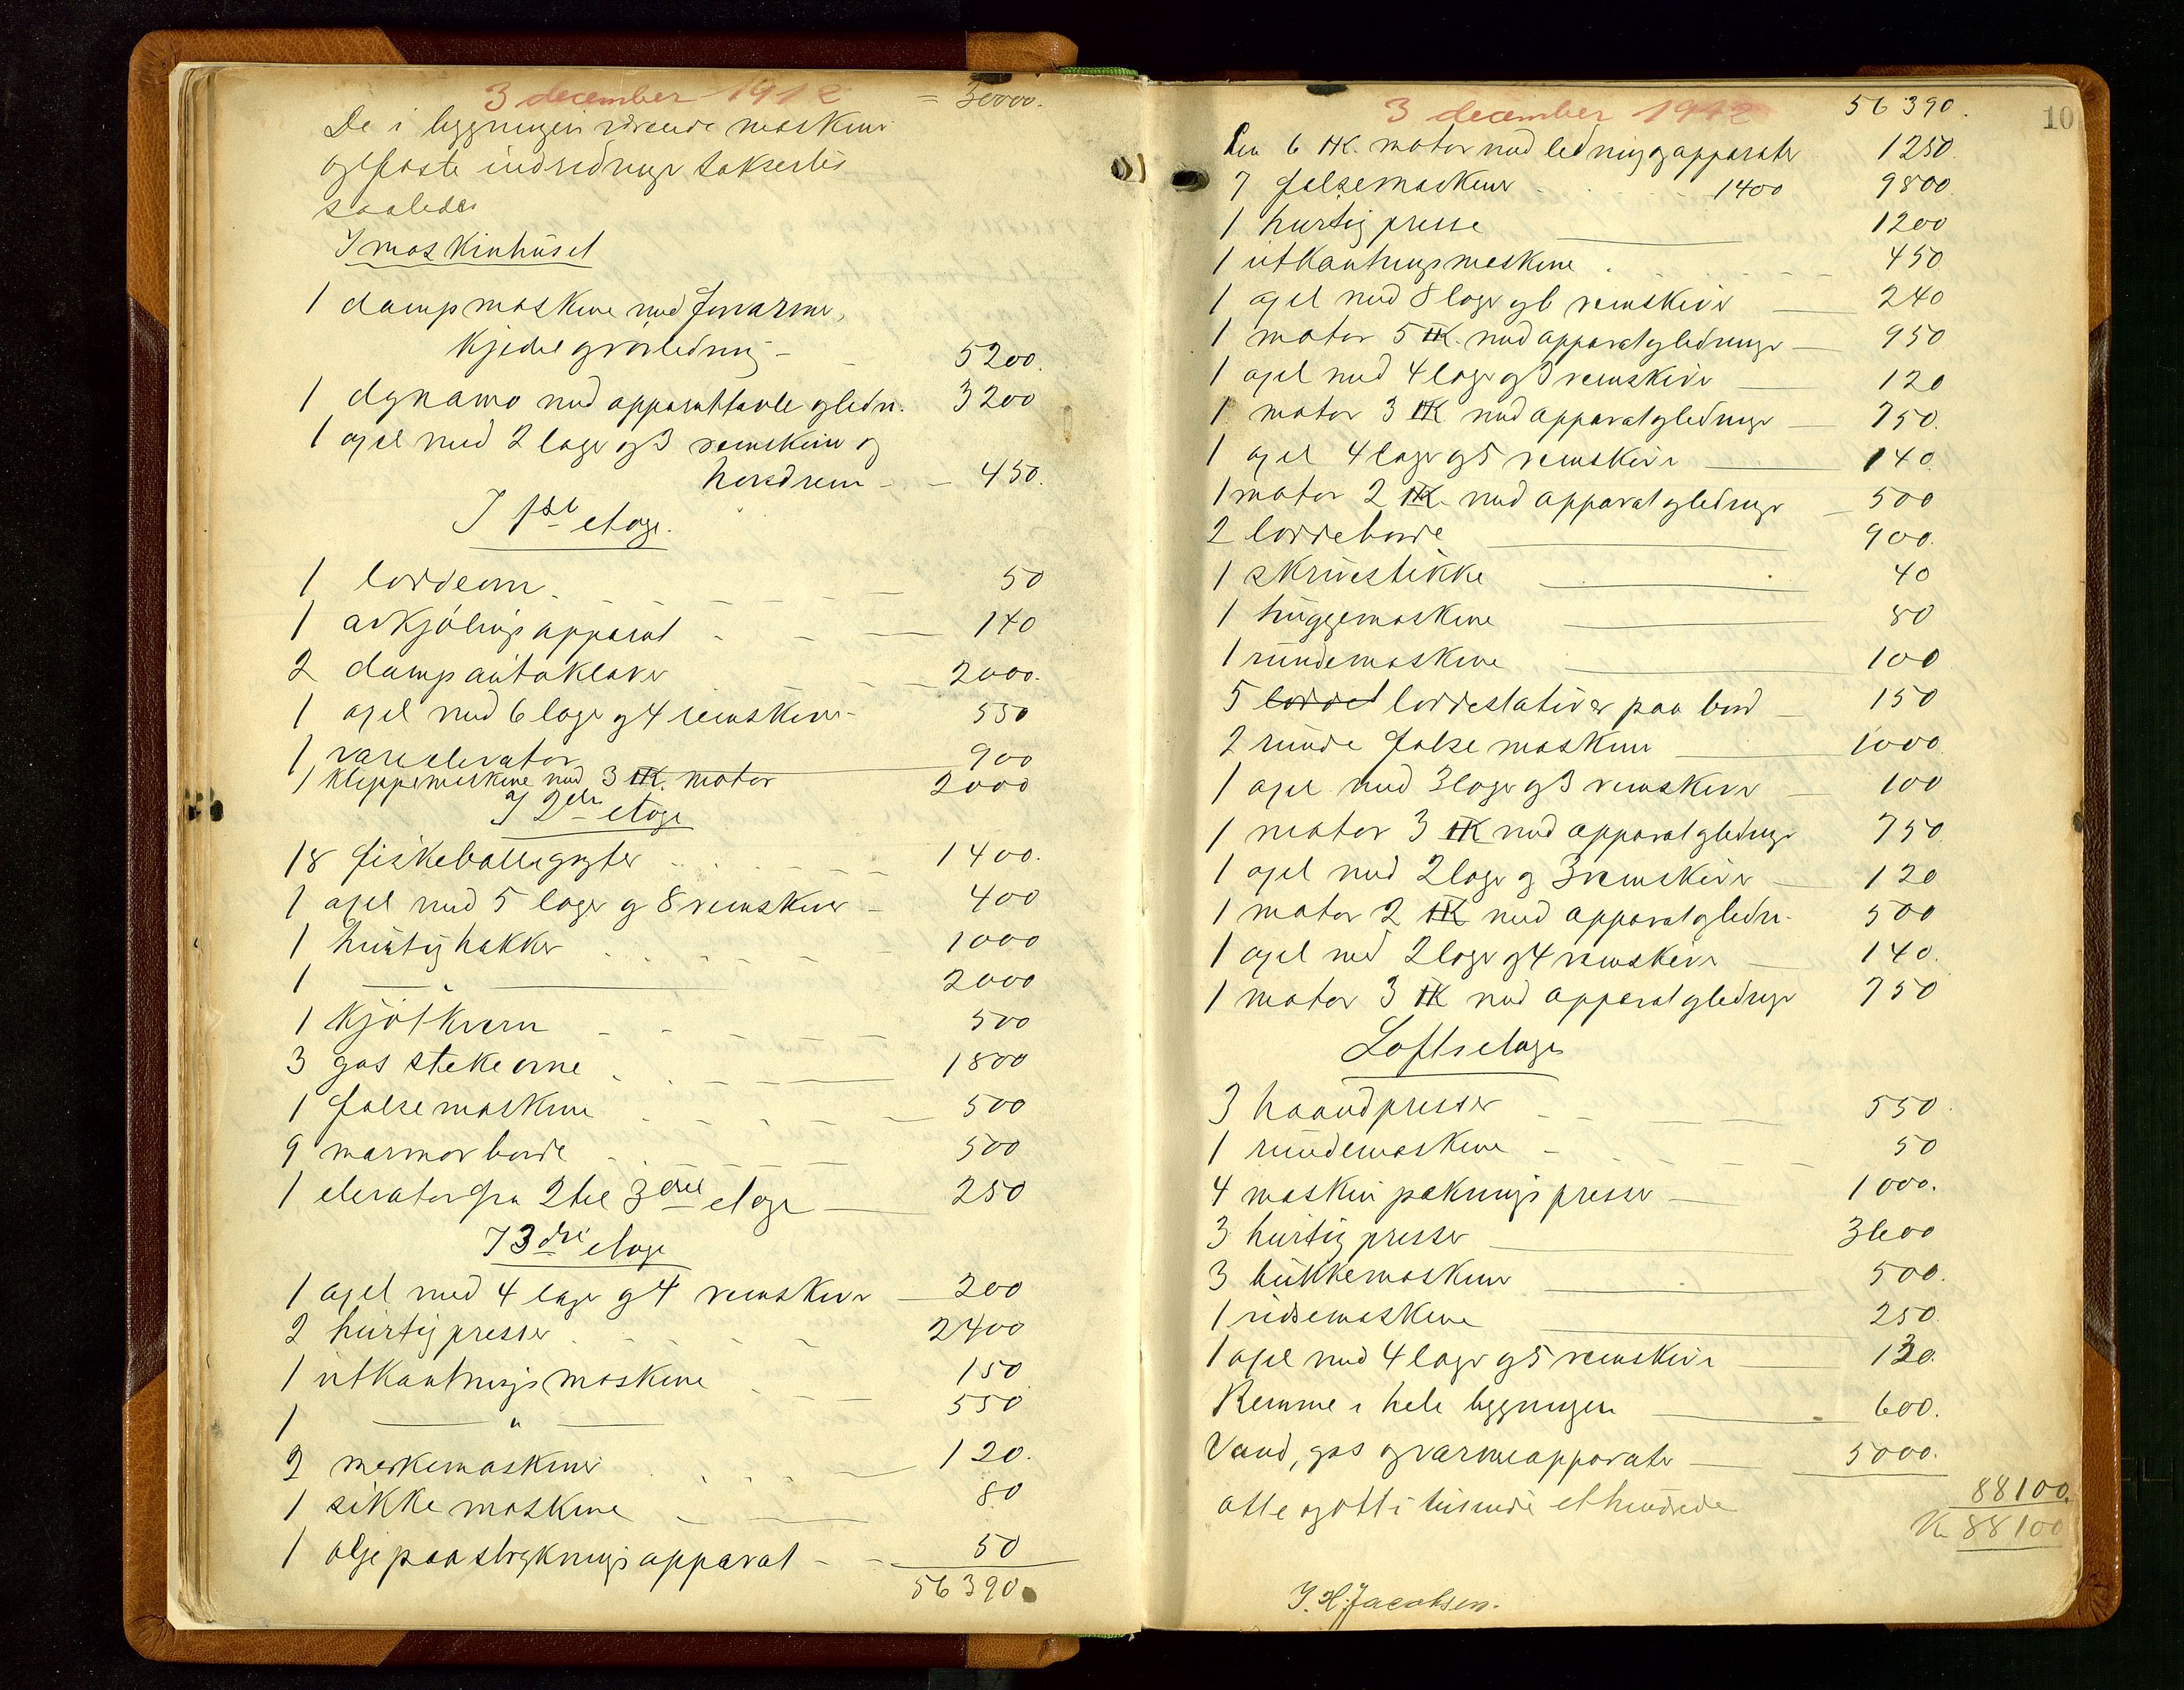 3 december 1912 = 30000.
De i bygningen værende maskiner
og faste indredninger taksertes
saaledes
I maskinhuset
1 dampmaskine med forvarmer,
kjedel og rörledning - - 5200.
1 dynamo med apparattavle og ledn. 3200
1 axel med 2 lager og 3 remskiver og
hovedrem - - 450.
I 1ste etage.
1 loddeovn - - 50
1 avkjölingsapparat - - 140
2 dampautoklaver - - 2000.
1 axel med 6 lager og 4 remskiver - 550
1 vareelevator 900
1 klippemaskine med 3 HK. motor 2000
I 2den etage
18 fiskebollegryter - - 1400.
1 axel med 5 lager og 8 remskiver - 400
1 hurtighakker - - 1000
1 — " — 2000
1 kjötkvern - - 500
3 gas stekeovne - - 1800
1 falsemaskine - - 500
9 marmorborde - - 500
1 elevator fra 2 til 3die etage — 250
I 3die etage
1 axel med 4 lager og 4 remskiver — 200
2 hurtigpresser - - 2400
1 utkantningsmaskine - - 150
1 — " — 550
2 merkemaskiner - - 120.
1 sikkemaskine - - 80
1 oljepaastrykningsapparat - - 50
56390.
3 december 1912 56390.
10
En 6 HK. motor med ledning og apparater 1250.
7 falsemaskiner - - 1400 9800
1 hurtigpresse — 1200
1 utkantningsmaskine - - 450
1 axel med 8 lager og 6 remskiver — 240
1 motor 5 HK. med apparat og ledninger — 950
1 axel med 4 lager og 3 remskiver — 120
1 motor 3 HK med apparat og ledninger — 750.
1 axel 4 lager og 5 remskiver — 140.
1 motor 2 HK. med apparat og ledninger — 500
2 loddeborde — 900.
1 skruestikke — 40
1 huggemaskine — 80
1 rundemaskine — 100
5 loddet loddestativer paa bord — 150
2 runde falsemaskiner — 1000
1 axel med 3 lager og 3 remskiver — 100
1 motor 3 HK med apparat og ledninger 750
1 axel med 2 lager og 3 remskiver — 120
1 motor 2 HK med apparat og ledn. 500
1 axel med 2 lager og 4 remskiver — 140.
1 motor 3 HK med apparat og ledninger 750
Loftsetage
3 haandpresser - - 550.
1 rundemaskine - - 50
4 maskin pakningspresser — 1000.
3 hurtigpresser — 3600
3 bukkemaskiner — 500.
1 ridsemaskine — 250.
1 axel med 4 lager og 5 remskiver — 130.
Remme i hele bygningen — 600.
Vand, gas og varmeapparater — 5000.
88100.
otte og otti tusinde et hundrede Kr 88100
J. H. Jacobsen.